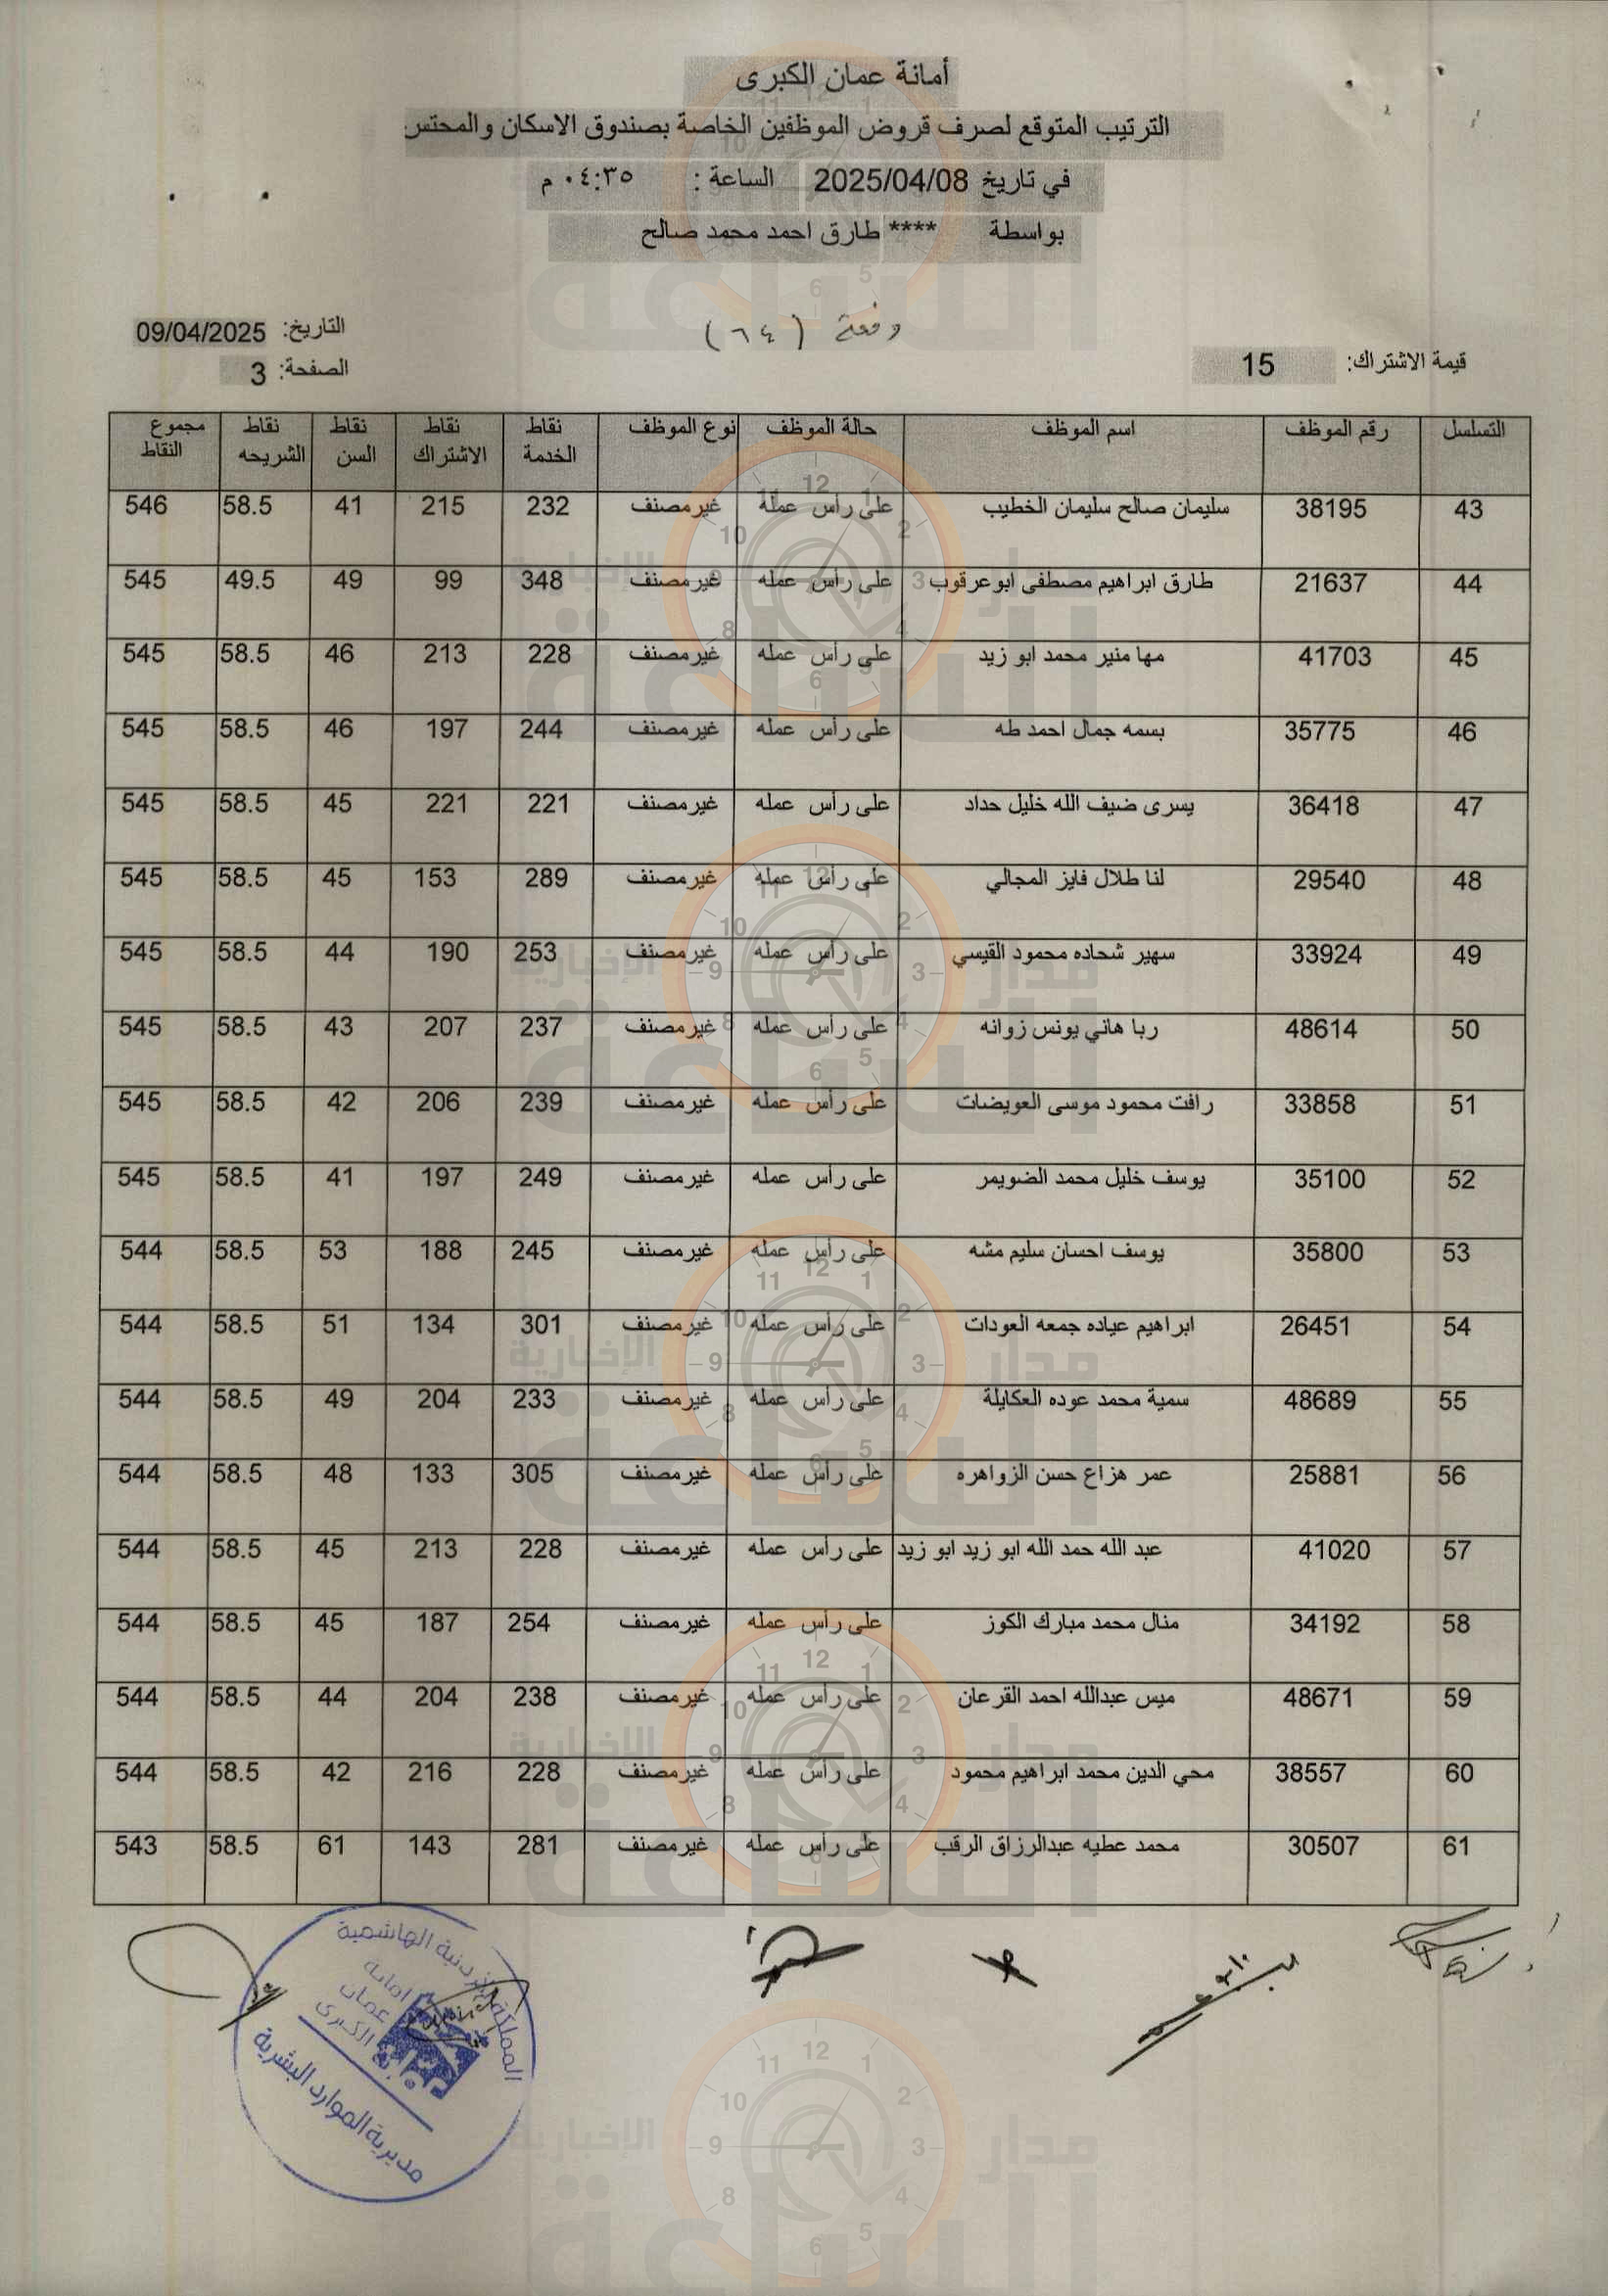 أمانة عمان الكبرى
الترتيب المتوقع لصرف قروض الموظفين الخاصة بصندوق الاسكان والمحتس
في تاريخ 2025/04/08 الساعة : ٠٤:٣٥ م
بواسطة **** طارق احمد محمد صالح
دفعة (٦٤)
التاريخ: 09/04/2025
قيمة الاشتراك: 15
الصفحة: 3
التسلسل رقم الموظف اسم الموظف حالة الموظف نوع الموظف نقاط الخدمة نقاط الاشتراك نقاط السن نقاط الشريحه مجموع النقاط
43 38195 سليمان صالح سليمان الخطيب على رأس عمله غير مصنف 232 215 41 58.5 546
44 21637 طارق ابراهيم مصطفى ابو عرقوب على رأس عمله غير مصنف 348 99 49 49.5 545
45 41703 مها منير محمد ابو زيد على رأس عمله غير مصنف 228 213 46 58.5 545
46 35775 بسمه جمال احمد طه على رأس عمله غير مصنف 244 197 46 58.5 545
47 36418 يسرى ضيف الله خليل حداد على رأس عمله غير مصنف 221 221 45 58.5 545
48 29540 لنا طلال فايز المجالي على رأس عمله غير مصنف 289 153 45 58.5 545
49 33924 سهير شحاده محمود القيسي على رأس عمله غير مصنف 253 190 44 58.5 545
50 48614 ربا هاني يونس زوانه على رأس عمله غير مصنف 237 207 43 58.5 545
51 33858 رافت محمود موسى العويضات على رأس عمله غير مصنف 239 206 42 58.5 545
52 35100 يوسف خليل محمد الضويمر على رأس عمله غير مصنف 249 197 41 58.5 545
53 35800 يوسف احسان سليم مشه على رأس عمله غير مصنف 245 188 53 58.5 544
54 26451 ابراهيم عياده جمعه العودات على رأس عمله غير مصنف 301 134 51 58.5 544
55 48689 سمية محمد عوده العكايلة على رأس عمله غير مصنف 233 204 49 58.5 544
56 25881 عمر هزاع حسن الزواهره على رأس عمله غير مصنف 305 133 48 58.5 544
57 41020 عبد الله حمد الله ابو زيد ابو زيد على رأس عمله غير مصنف 228 213 45 58.5 544
58 34192 منال محمد مبارك الكوز على رأس عمله غير مصنف 254 187 45 58.5 544
59 48671 ميس عبدالله احمد القرعان على رأس عمله غير مصنف 238 204 44 58.5 544
60 38557 محي الدين محمد ابراهيم محمود على رأس عمله غير مصنف 228 216 42 58.5 544
61 30507 محمد عطيه عبدالرزاق الرقب على رأس عمله غير مصنف 281 143 61 58.5 543
المملكة الأردنية الهاشمية
امانة
عمان
الكبرى
مديرية الموارد البشرية
مدار الساعة الإخبارية